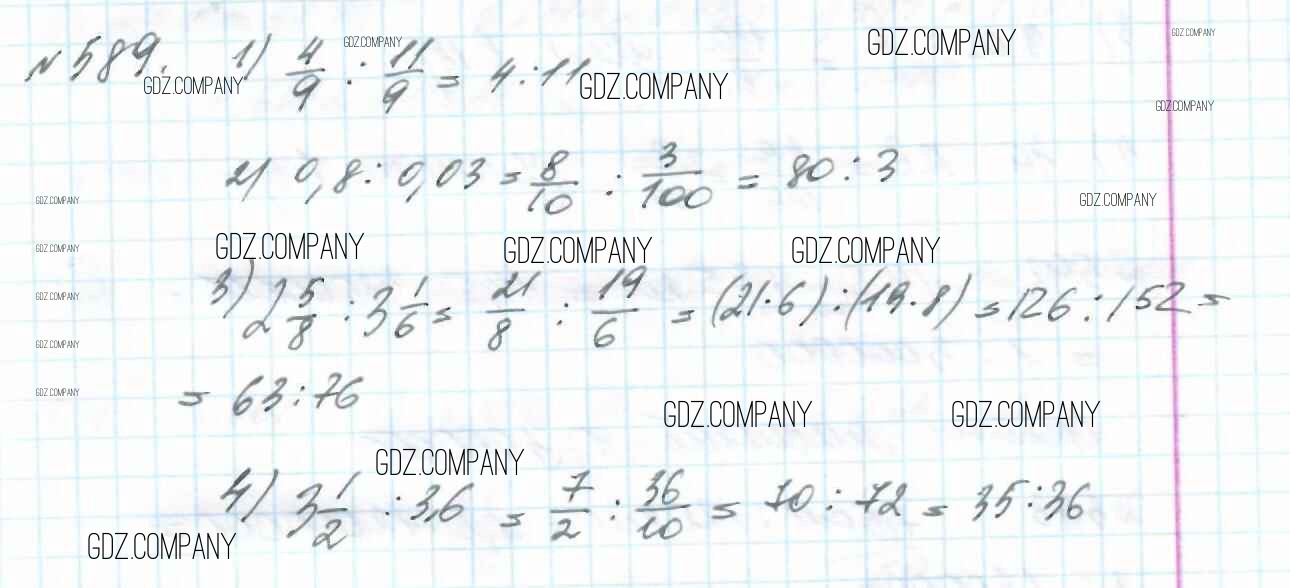 №589. 1) 4/9 : 11/9 = 4:11
GDZ.COMPANY GDZ.COMPANY GDZ.COMPANY GDZ.COMPANY GDZ.COMPANY
GDZ.COMPANY
2) 0,8 : 0,03 = 8/10 : 3/100 = 80 : 3
GDZ.COMPANY GDZ.COMPANY
GDZ.COMPANY GDZ.COMPANY GDZ.COMPANY GDZ.COMPANY
3) 2 5/8 : 3 1/6 = 21/8 : 19/6 = (21·6) : (19·8) = 126 : 152 =
GDZ.COMPANY
GDZ.COMPANY
= 63 : 76
GDZ.COMPANY
GDZ.COMPANY GDZ.COMPANY
GDZ.COMPANY
4) 3 1/2 : 3,6 = 7/2 : 36/10 = 70 : 72 = 35 : 36
GDZ.COMPANY